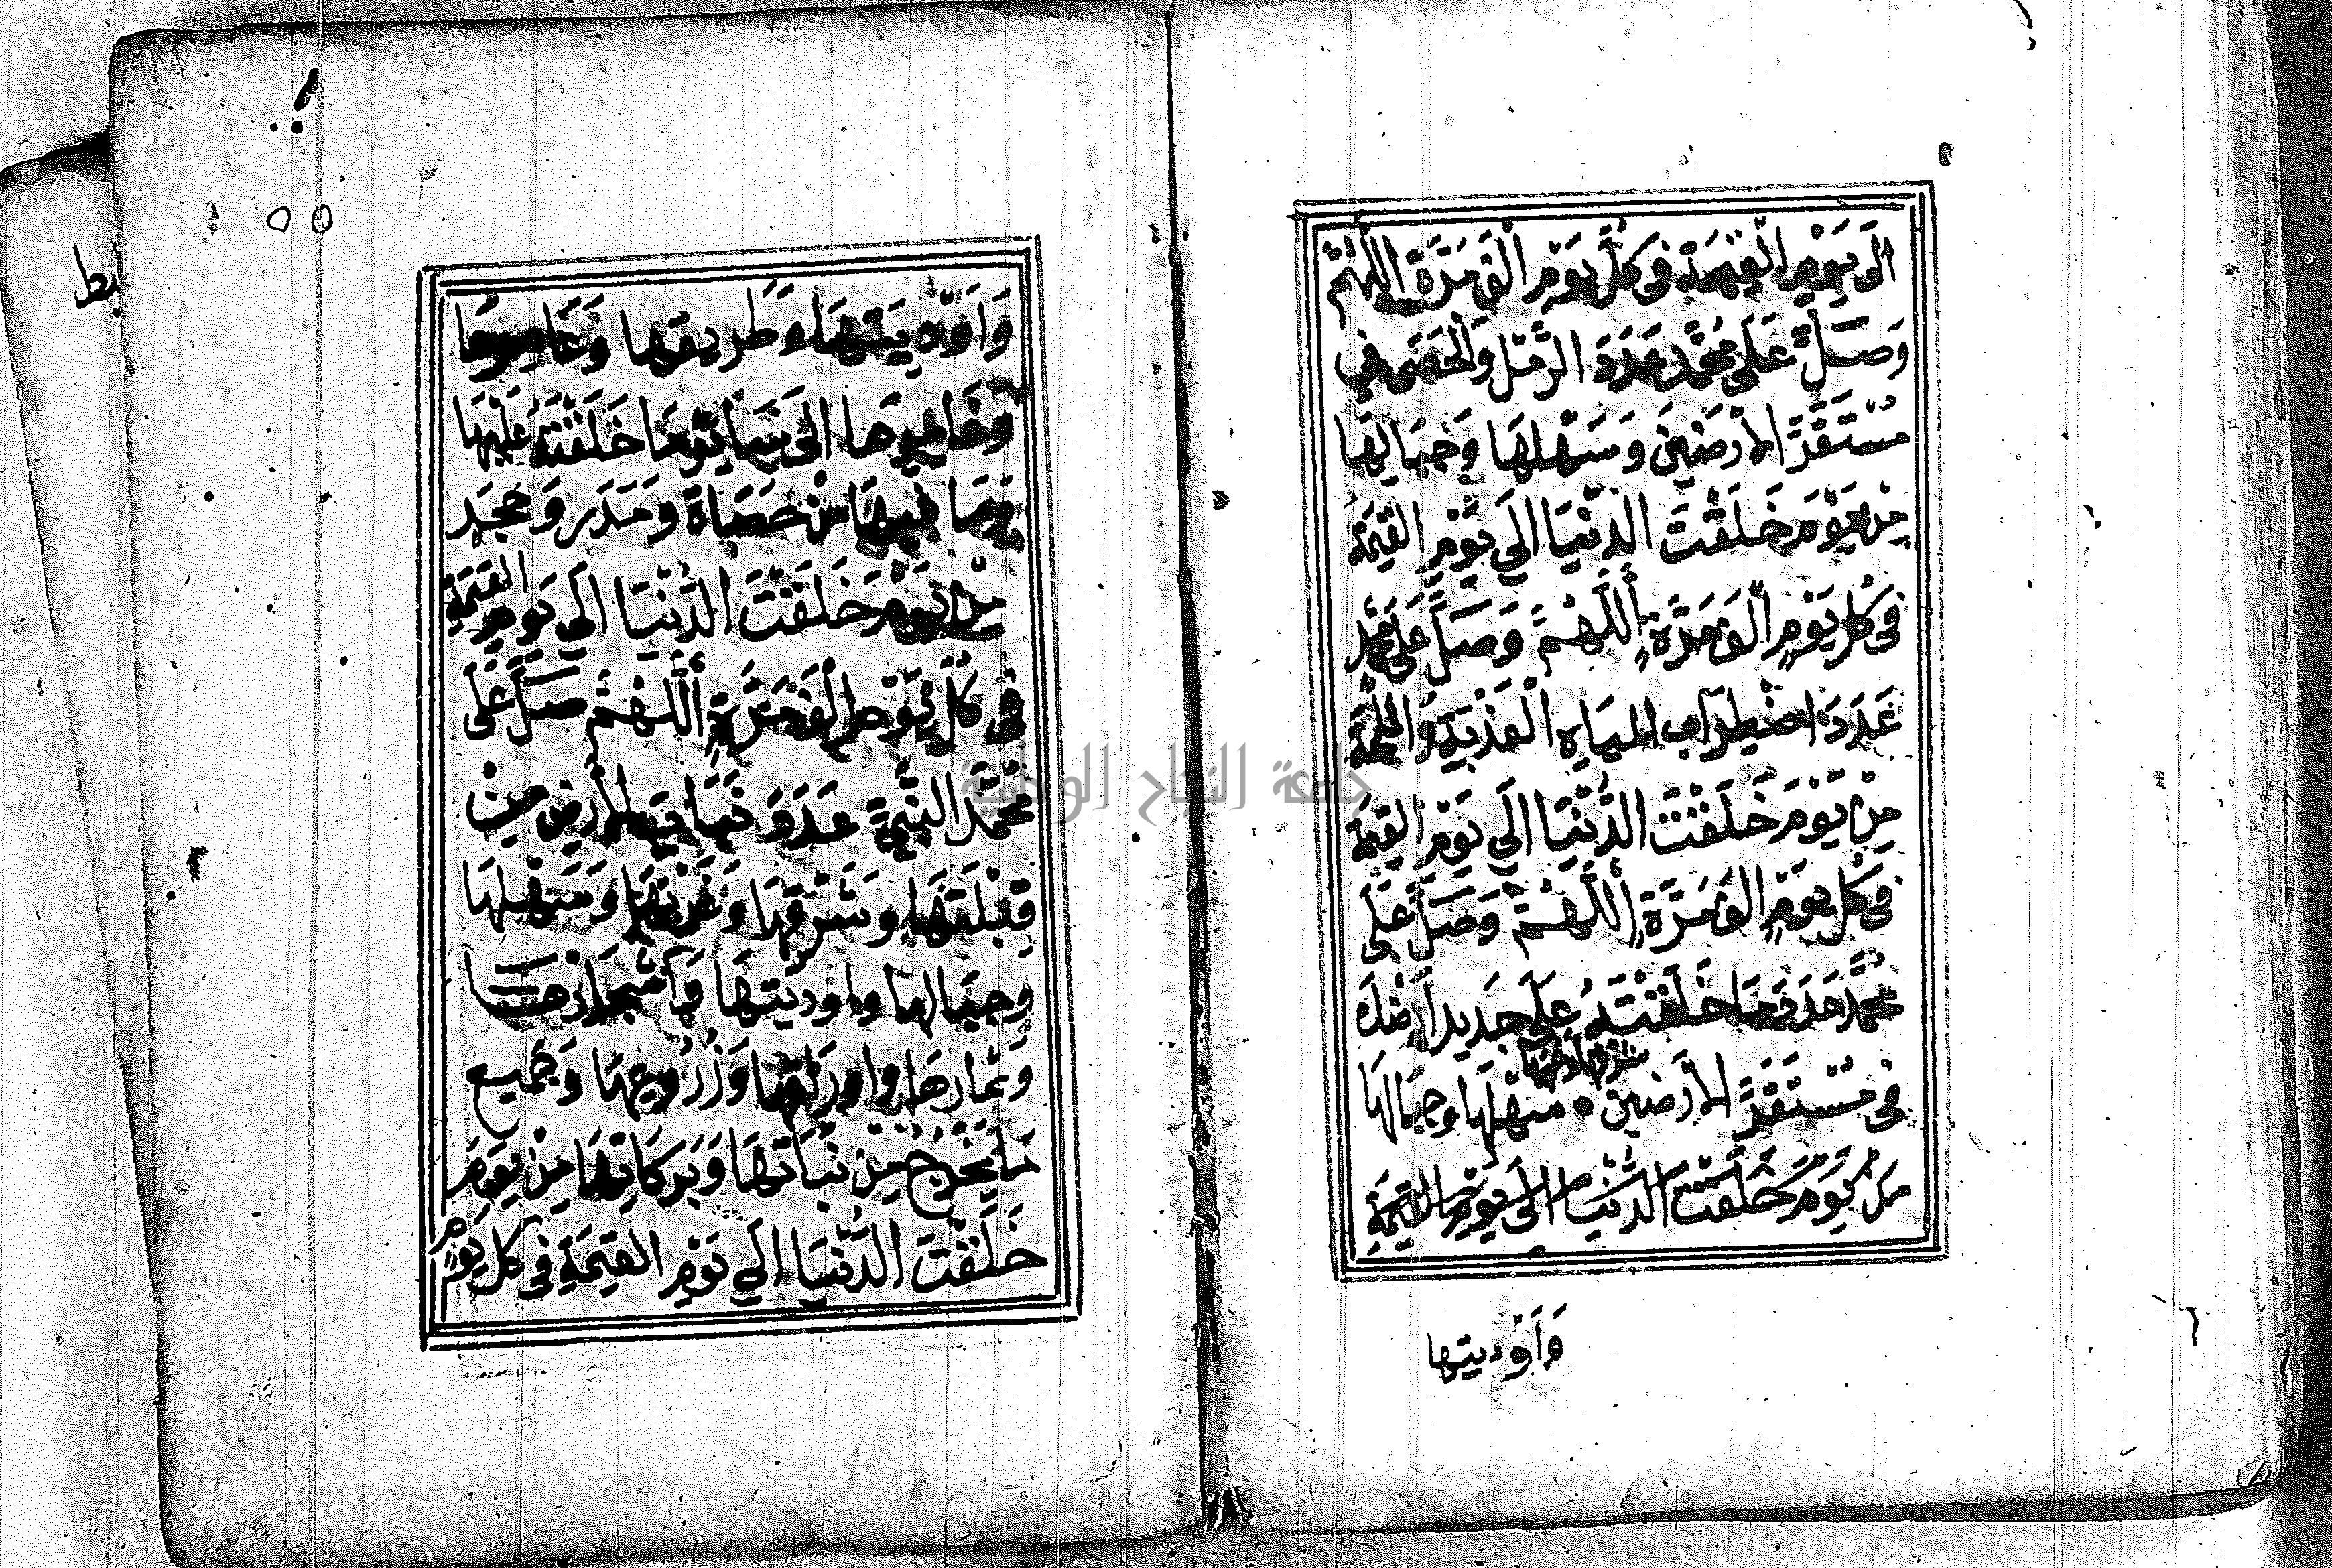 الَى يَوْمِ الْقِيٰمَةِ فِى كُلِّ يَوْمٍ اَلْفَ مَرَّةٍ اَللّٰهُمَّ
وَصَلِّ عَلَى مُحَمَّدٍ عَدَدَ الرَّمْلِ وَالْحَصَى فِى
مُسْتَقَرِّ الْاَرَضِينَ وَسَهْلِهَا وَجِبَالِهَا
مِنْ يَوْمَ خَلَقْتَ الدُّنْيَا اِلَى يَوْمِ الْقِيٰمَةِ
فِى كُلِّ يَوْمٍ اَلْفَ مَرَّةٍ اَللّٰهُمَّ وَصَلِّ عَلَى مُحَمَّدٍ
عَدَدَ اضْطِرَابِ الْمِيَاهِ الْعَذْبَةِ وَالْمِلْحَةِ
مِنْ يَوْمَ خَلَقْتَ الدُّنْيَا اِلَى يَوْمِ الْقِيٰمَةِ
فِى كُلِّ يَوْمٍ اَلْفَ مَرَّةٍ اَللّٰهُمَّ وَصَلِّ عَلَى
مُحَمَّدٍ عَدَدَ مَا خَلَقْتَهُ عَلَى جَدِيدِ اَرْضِكَ
فِى مُسْتَقَرِّ الْاَرَضِينَ سَهْلِهَا وَجِبَالِهَا
مِنْ يَوْمَ خَلَقْتَ الدُّنْيَا اِلَى يَوْمِ الْقِيٰمَةِ
وَاَوْدِيَتِهَا
وَاَوْدِيَتِهَا وَطَرِيقِهَا وَعَامِرِهَا
وَغَامِرِهَا اِلَى سَائِرِ مَا خَلَقْتَهُ عَلَيْهَا
وَمَا فِيهَا مِنْ حَصَاةٍ وَمَدَرٍ وَحَجَرٍ
مِنْ يَوْمَ خَلَقْتَ الدُّنْيَا اِلَى يَوْمِ الْقِيٰمَةِ
فِى كُلِّ يَوْمٍ اَلْفَ مَرَّةٍ اَللّٰهُمَّ صَلِّ عَلَى
مُحَمَّدٍ النَّبِيِّ عَدَدَ نَبَاتِ الْاَرْضِ مِنْ
قِبْلَتِهَا وَشَرْقِهَا وَغَرْبِهَا وَسَهْلِهَا
وَجِبَالِهَا وَاَوْدِيَتِهَا وَاَشْجَارِهَا
وَثِمَارِهَا وَاَوْرَاقِهَا وَزُرُوعِهَا وَجَمِيعِ
مَا يَخْرُجُ مِنْ نَبَاتِهَا وَبَرَكَاتِهَا مِنْ يَوْمِ
خَلَقْتَ الدُّنْيَا اِلَى يَوْمِ الْقِيٰمَةِ فِى كُلِّ يَوْمٍ
جامعة النجاح الوطنية